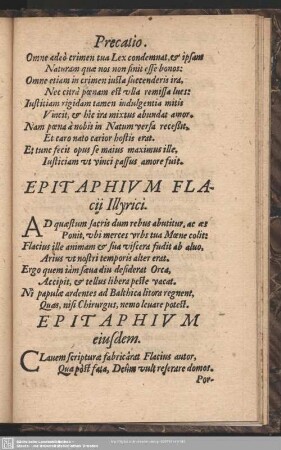 Precatio.
Omne adeò crimen tua Lex condemnat, & ipsam
Naturam quæ nos non sinit esse bonos:
Omne etiam in crimen iusta succenderis ira,
Nec citrà pœnam est vlla remissa lues:
Iusticiam rigidam tamen indulgentia mitis
Vincit, & hîc ira mixtus abundat amor.
Nam pœna à nobis in Natum versa recessit,
Et caro nato carior hostis erat.
Et tunc fecit opus se maius maximus ille,
Iusticiam vt vinci passus amore fuit.
EPITAPHIVM FLA-
cij Illyrici.
AD quæstum sacris dum rebus abutitur, ac æs
Ponit, vbi merces vrbs tua Mœne colit:
Flacius ille animam & sua viscera fudit ab aluo,
Arius vt nostri temporis alter erat.
Ergo quem iàm sæua diu desiderat Orca,
Accipit, & tellus libera peste vacat.
Ni papulæ ardentes ad Balthica litora regnent,
Quas, nisi Chirurgus, nemo leuare potest.
EPITAPHIVM
eiusdem.
CLauem scripturæ fabricârat Flacius autor,
Qua pòst fata, Deûm vult reserare domos.
Por-